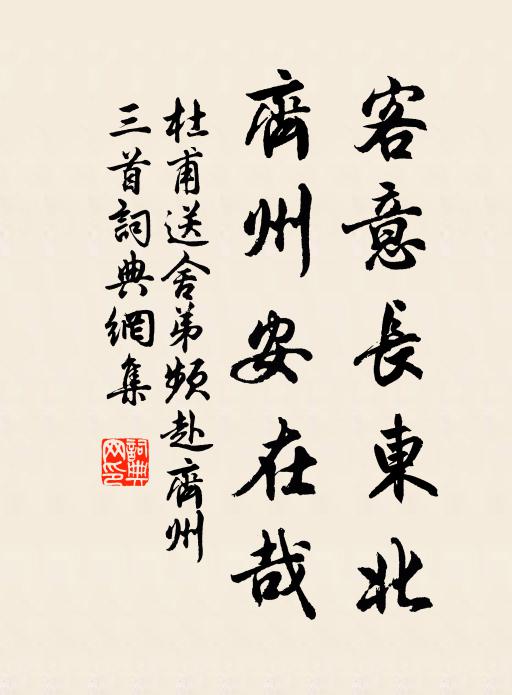 客意長東北
齊州安在哉
杜甫送舍弟頻赴齊州
三首詞典網集
詞典網印